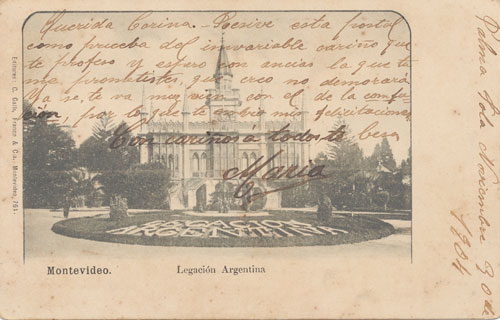 Querida Corina. - Recive esta postal
como prueba del invariable cariño que
te profeso y espero con ancias la que te
me prometistes, que creo no demorará
Ya se, te va muy bien con el de la
por lo que te envio mis felicitaciones
Con cariños a todos te besa
Maria
LEGACION
ARGENTINA
Montevideo.
Legación Argentina
Editores: C. Galli, Franco & Cia., Montevideo, 761.
Palma Sola Noviembre 30 de
1904